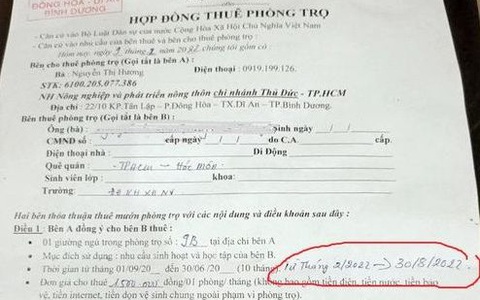 ĐÔNG HÒA - DĨ AN
BÌNH DƯƠNG
HỢP ĐỒNG THUÊ PHÒNG TRỌ
- Căn cứ vào Bộ Luật Dân sự của nước Cộng Hòa Xã Hội Chủ Nghĩa Việt Nam
- Căn cứ vào nhu cầu của bên thuê và bên cho thuê phòng trọ :
Hôm nay, ngày tháng năm chúng tôi gồm có :
Bên cho thuê phòng trọ (Gọi tắt là bên A) :
Bà : Nguyễn Thị Hương Điện thoại : 0919.199.126.
STK: 6100.205.077.386
NH Nông nghiệp và phát triển nông thôn chi nhánh Thủ Đức - TP.HCM
Địa chỉ : 22/10 KP.Tân Lập - P.Đông Hòa – TX.Dĩ An – TP.Bình Dương.
Bên thuê phòng trọ (Gọi tắt là bên B) :
Ông (bà) : Sinh ngày / /
CMND số : cấp ngày / / do C.A. cấp.
Điện thoại nhà : Di Động
Quê quán : TPHCM - Hóc Môn
Sinh viên lớp : khoa:
Trường
Hai bên thỏa thuận thuê mướn phòng trọ với các nội dung và điều khoản sau đây :
Điều 1 : Bên A đồng ý cho bên B thuê :
• 01 giường ngủ trong phòng trọ số : 9B tại địa chỉ bên A
• Mục đích sử dụng : nhu cầu sinh hoạt và học tập của bên B.
• Thời gian từ tháng 01/09/20 đến 30/06/20 (10 tháng). từ tháng 2/2022 → 30/8/2022.
• Đơn giá cho thuê 1500.000 đồng/01 phòng/ tháng (không bao gồm tiền điện, tiền nước, tiền bảo
vệ, tiền internet, tiền dọn vệ sinh chung ngoài phạm vi phòng trọ).